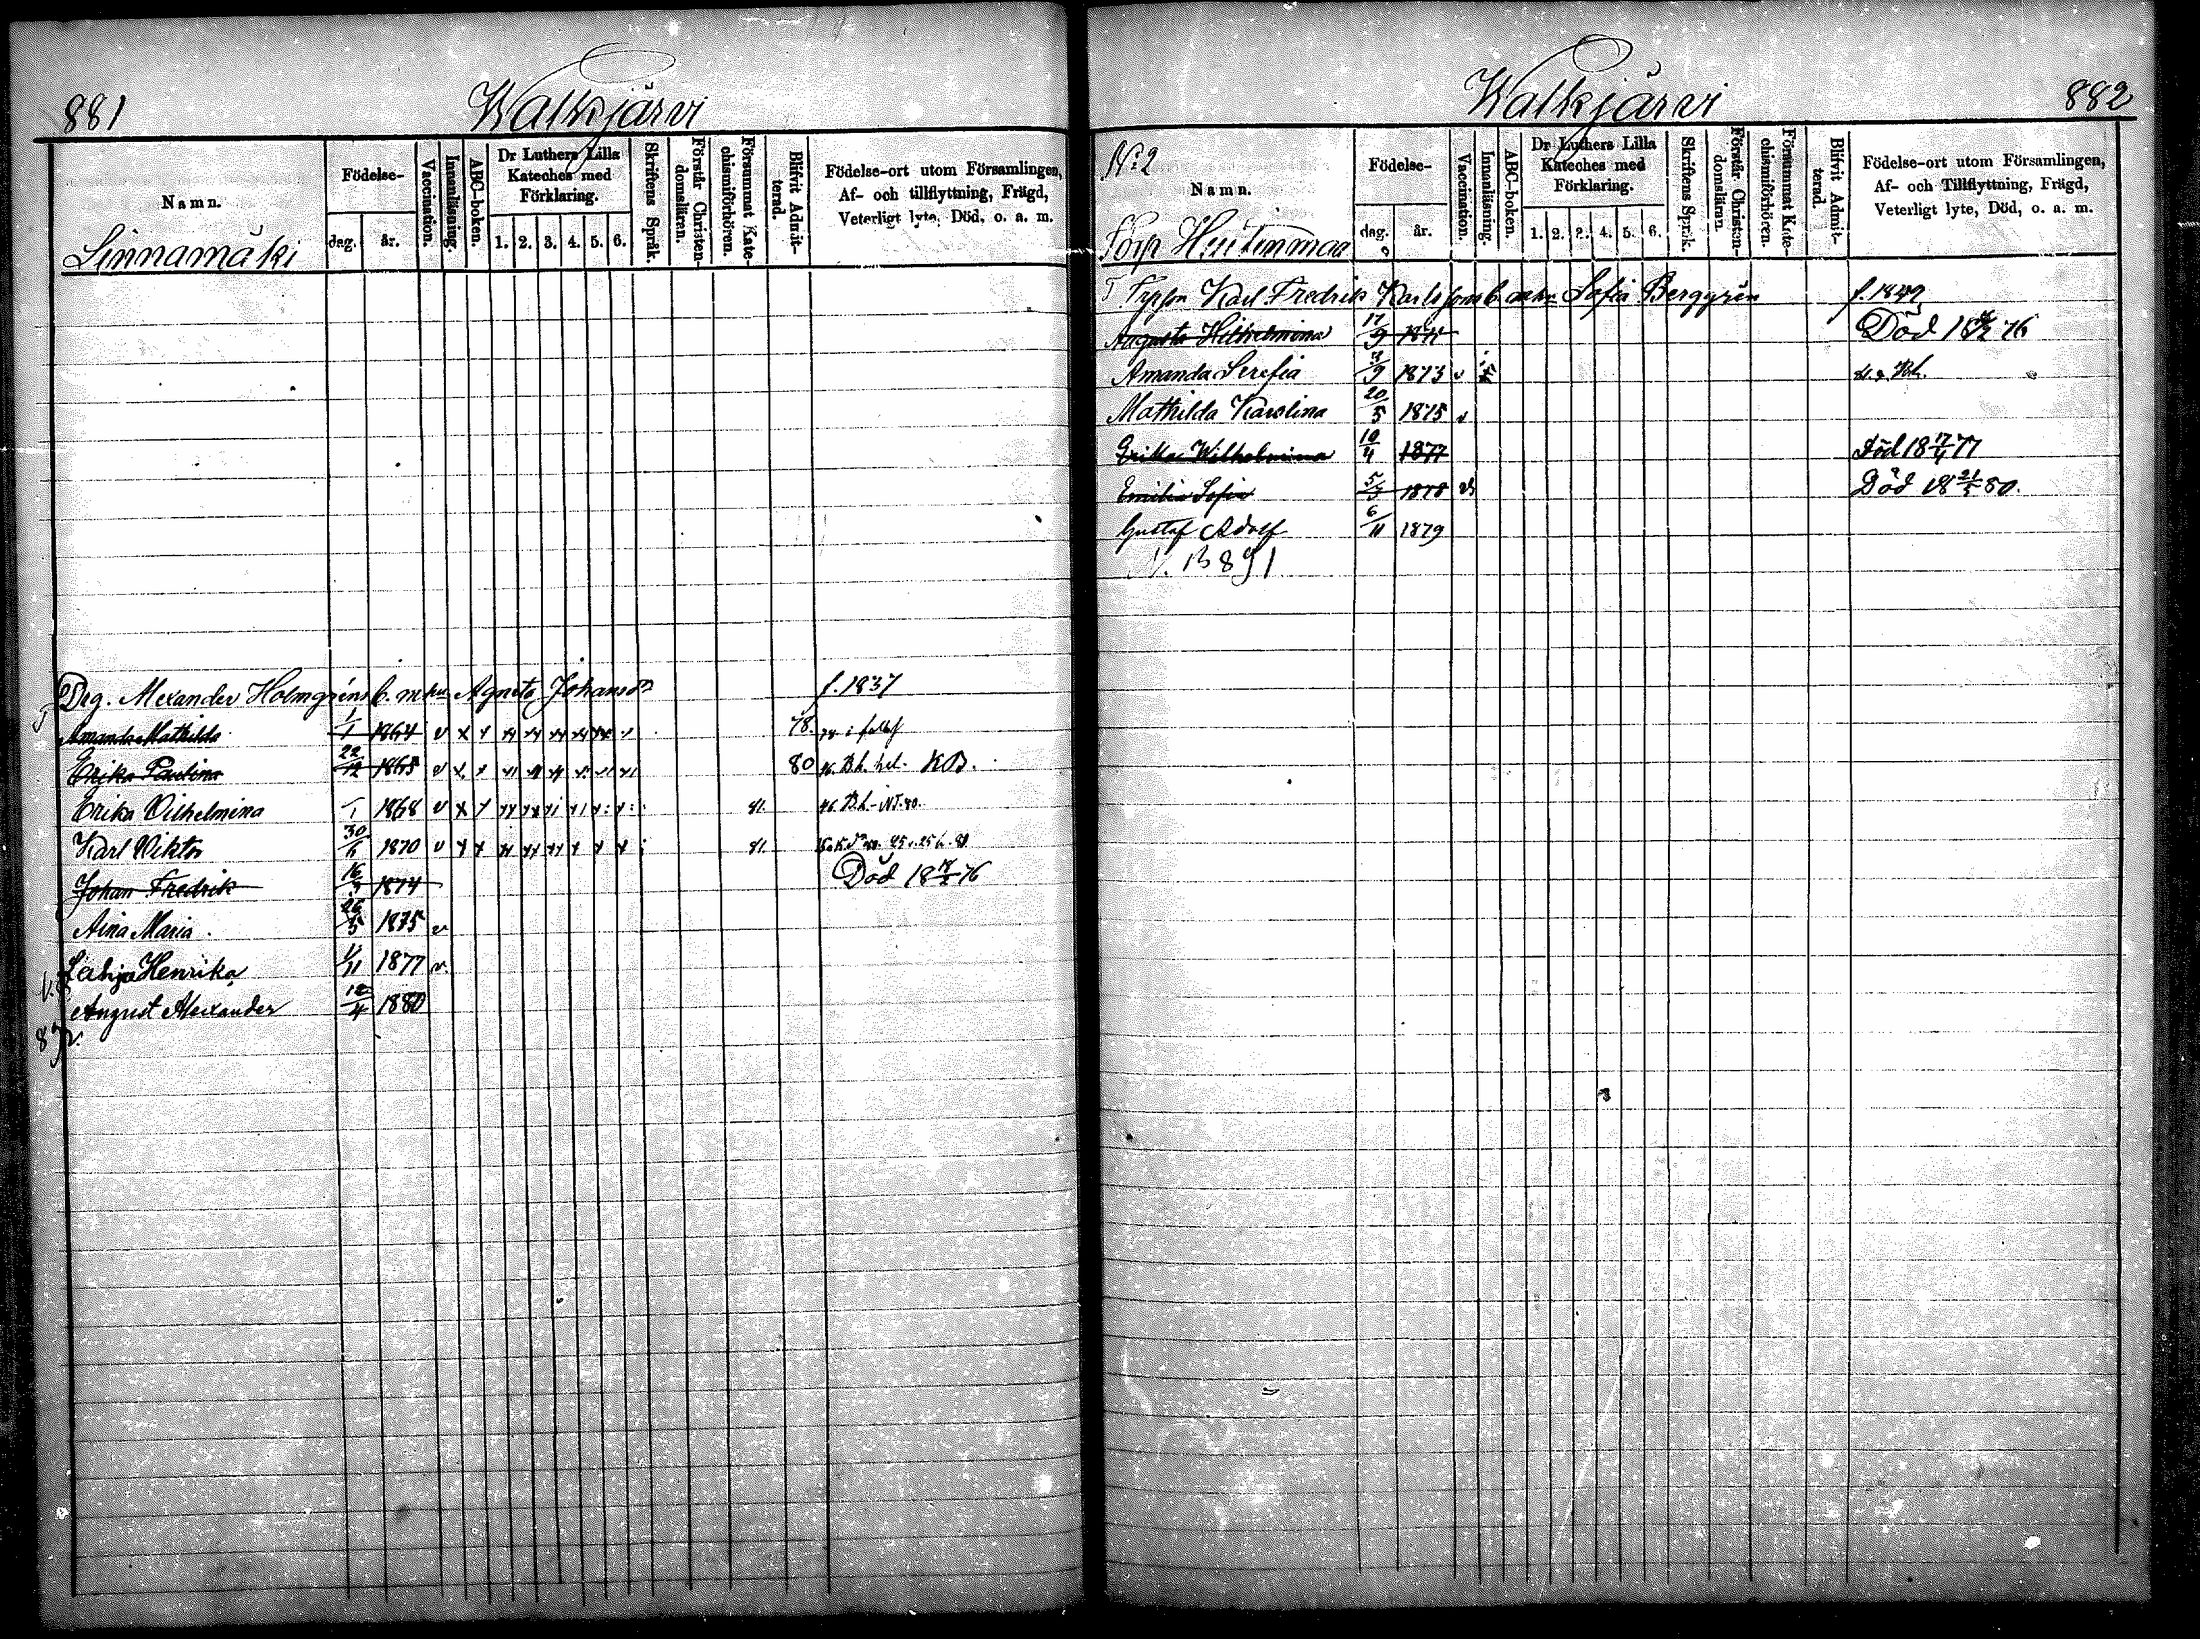 881
Walkjärvi
Namn.
Födelse-
dag.
år.
Vaccination.
Innanläsning.
ABC-boken.
Dr Luthers Lilla
Kateches med
Förklaring.
1. 2. 3. 4. 5. 6.
Skriftens Språk.
Förstår Christen-
domsläran.
Försummat Kate-
chismiförhören.
Blifvit Admit-
terad.
Födelse-ort utom Församlingen,
Af- och tillflyttning, Frägd,
Veterligt lyte, Död, o. a. m.
Linnamäki
Drg. Alexander Holmgréns b. m. hu Agneta Johansdr f. 1837
Amanda Mathilda 1/1 1864 v 78.
Erika Paulina 22/12 1865 v 80
Erika Vilhelmina 1 1868 v 81.
Karl Viktor 30 1870 v 81.
Johan Fredrik 16/3 1874 Död 18 76
Aina Maria 26/5 1875 v
Lahja Henrika 11 1877 v.
August Alexander 12/4 1880
882
Walkjärvi
N:2
Namn.
Födelse-
dag.
år.
Vaccination.
Innanläsning.
ABC-boken.
Dr Luthers Lilla
Kateches med
Förklaring.
1. 2. 3. 4. 5. 6.
Skriftens Språk.
Förstår Christen-
domsläran.
Försummat Kate-
chismiförhören.
Blifvit Admit-
terad.
Födelse-ort utom Församlingen,
Af- och Tillflyttning, Frägd,
Veterligt lyte, Död, o. a. m.
Torp Huitinmaa
Karl Fredrik Karlssons b. m. hu Sofia Berggrén f. 1849
Augusta Wilhelmina 17/9 1871 Död 18 76
Amanda Serefia 9 1873 v
Mathilda Karolina 20/5 1875 v
Erika Wilhelmina 10/4 1877 Död 18 17/4 77
Emilia Sofia 5 1878 v Död 18 80.
Gustaf Adolf 6/11 1879
N. B 891